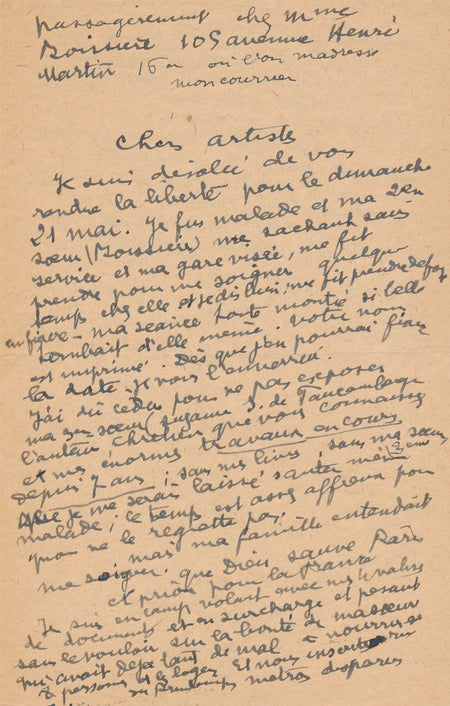 passagèrement chez Mme
Boissière 109 avenue Henri
Martin 16e où l'on m'adresse
mon courrier
Chers artistes
Je suis désolée de vous
rendre la liberté pour le dimanche
21 mai. Je fus malade et ma 2em
sœur (Boissière) me sachant sans
service et ma gare visée, me fit
prendre pour me soigner quelque
temps chez elle et me fit prendre
ma séance toute montée si elle
tombait d'elle même. Votre nom
est imprimé. Dès que j'en pourrai fixer
la date je vous l'enverrai.
J'ai dû céder pour ne pas exposer
ma 3em sœur (Suzanne S. de
l'auteur chrétien que vous connaissez
et mes énormes travaux en cours
depuis 7 ans ; sans mes livres, sans ma sœur,
je me serais laissé sauter même
malade ; ce temps est assez affreux pour
qu'on ne le regrette pas.
mais ma famille entendait
me soigner. que Dieu sauve Paris
et prions pour la France
Je suis en camp volant avec mes valises
de documents et en surcharge et pesant
sans le vouloir sur la bonté de ma sœur
qui avait déjà tant de mal à nourrir
personnes et loger. Et nous
au Printemps métros disparus